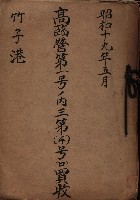 昭和十九年五月
高雄營第一号ノ内三第(四)号ロ買收
竹子港